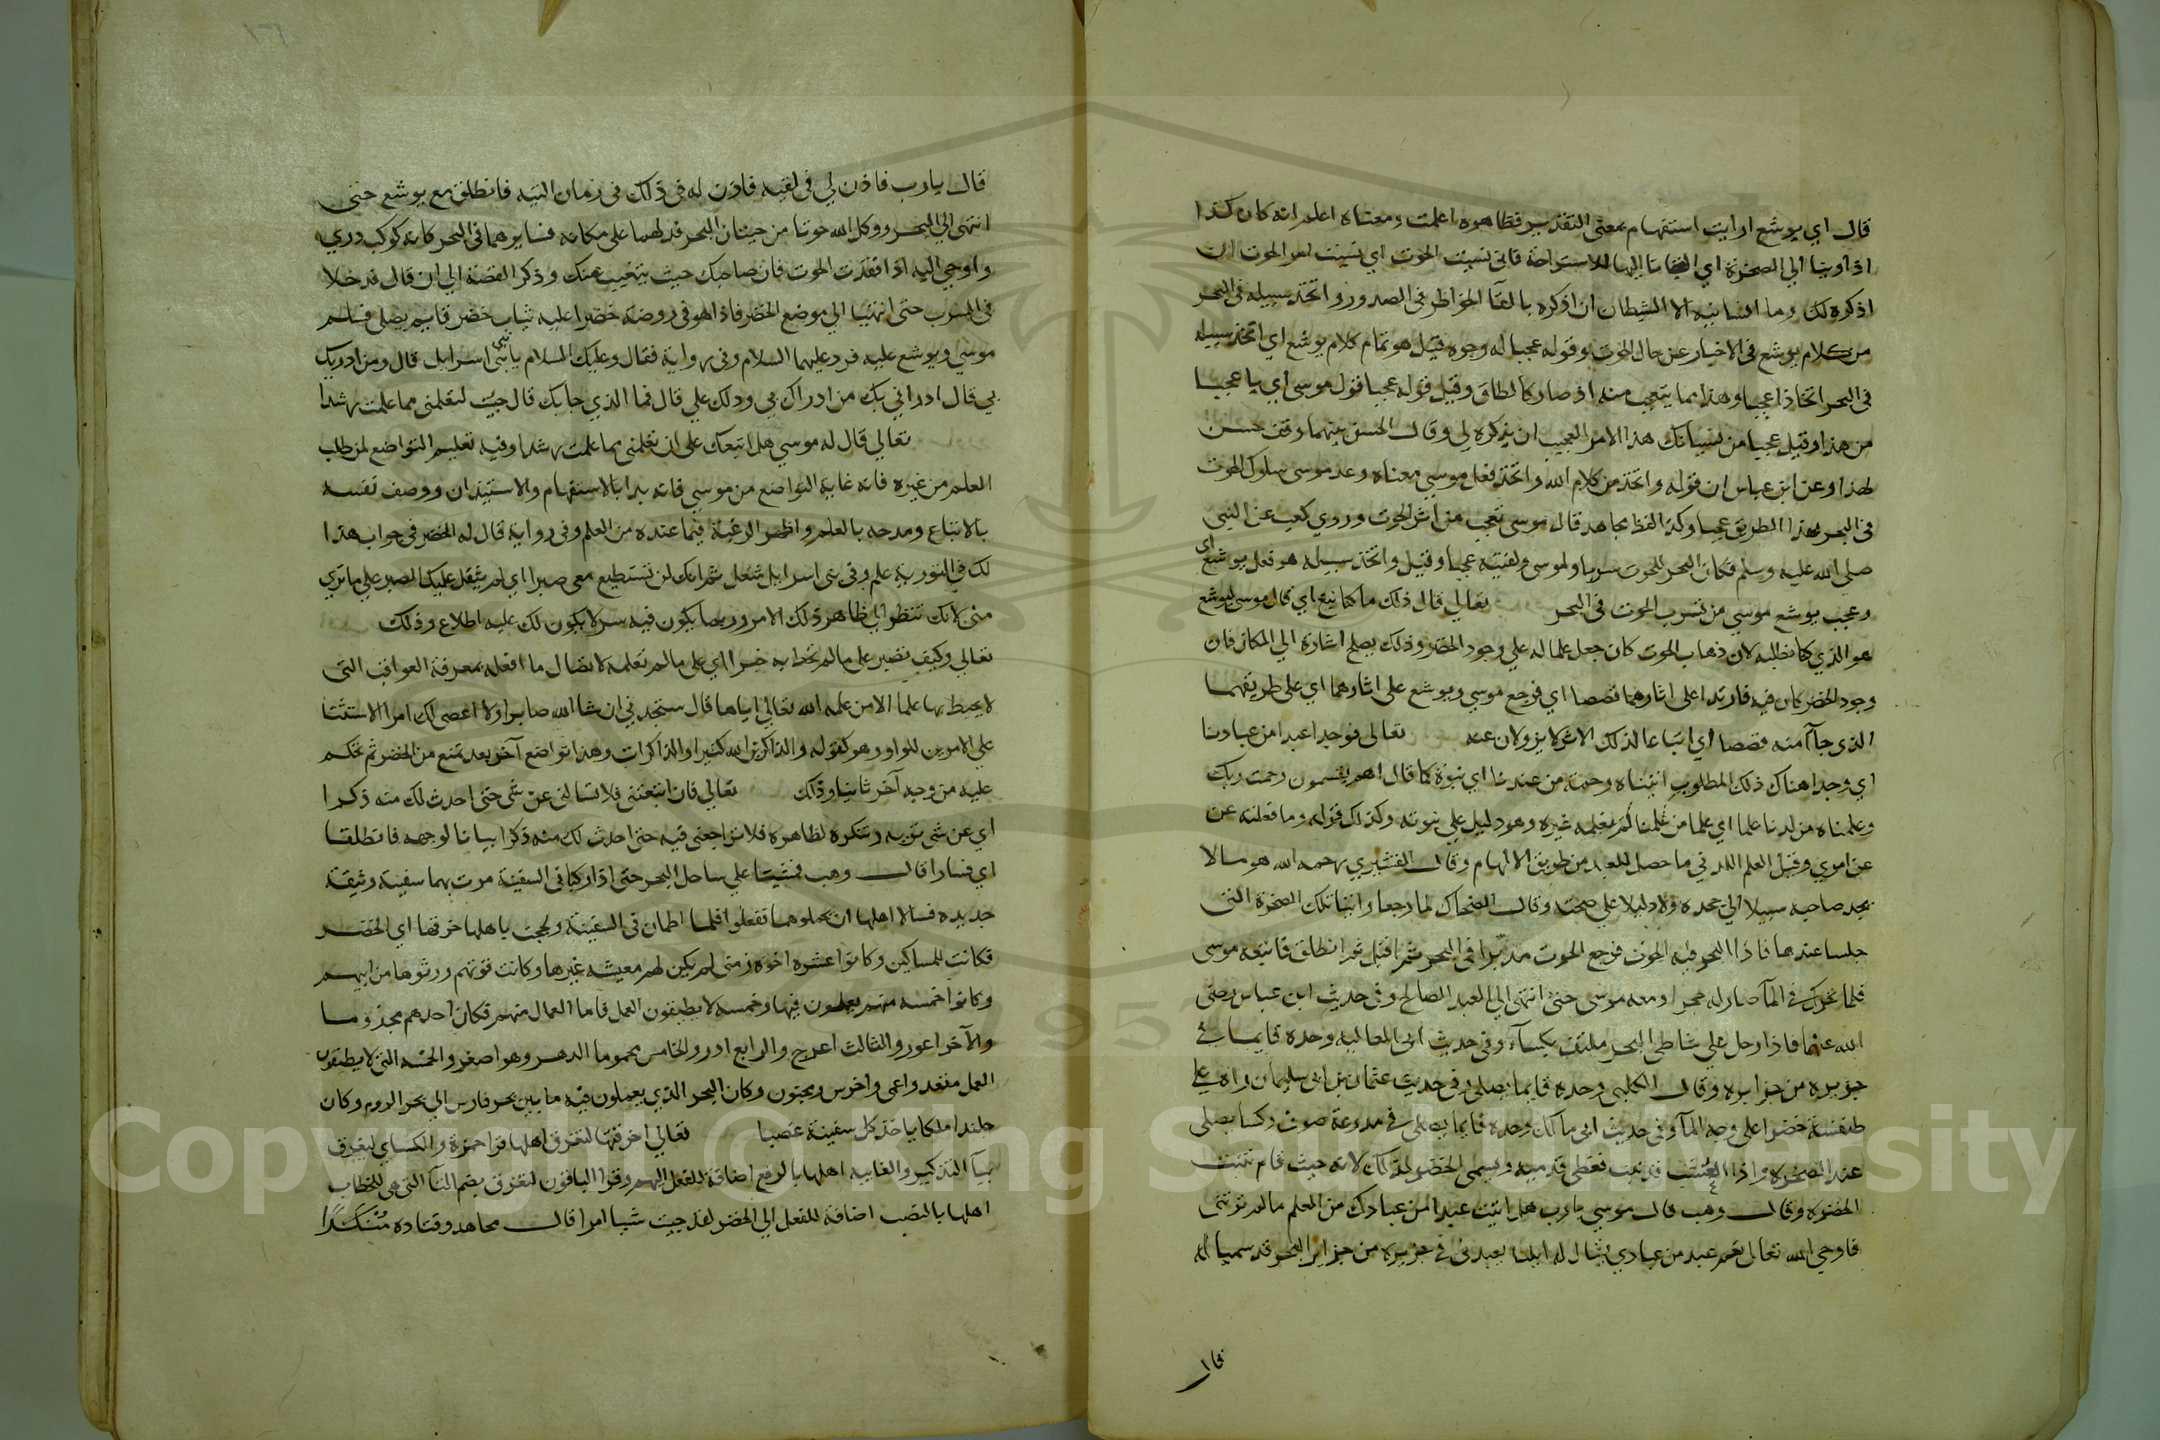 قال اي يوشع ارايت استفهام بمعنى التقدير فظاهره اعلمت ومعناه اعلم انه كان كذا
اذ اوينا الى الصخرة اي التجانا اليها للاستراحة فاني نسيت الحوت اي نسيت امر الحوت ان
اذكره لك وما انسانيه الا الشيطان ان اذكره بالقآ الخواطر في الصدور واتخذ سبيله في البحر
من كلام يوشع في الاخبار عن حال الحوت وقوله عجبا له وجوه قيل هو تمام كلام يوشع اي اتخذ سبيله
في البحر اتخاذا عجبا وهذا مما يتعجب منه اذ صار كالطاق وقيل قوله عجبا قول موسى اي يا عجبا
من هذا وقيل عجبا من نسيانك هذا الامر العجيب ان يذكره لي وقال الحسن بينهما وقف حسن
لهذا وعن ابن عباس ان قوله واتخذ من كلام الله واتخذ فعل موسى معناه وعد موسى سلوك الحوت
في البحر بهذا الطريق عجبا وكذا لفظ مجاهد قال موسى تعجب من اثر الحوت وروي كعب عن النبي
صلى الله عليه وسلم فكان البحر للحوت سربا ولموسى ولفتيه عجبا وقيل واتخذ سبيله هو فعل يوشع اي
وعجب يوشع موسى من تسرب الحوت في البحر تعالى قال ذلك ما كنا نبغ اي قال موسى ليوشع
هو الذي كنا نطلبه لان ذهاب الحوت كان جعل علما له على وجود الخضر وذلك يصلح اشارة الى المكان فان
وجود الخضر كان فيه فارتدا على اثارهما قصصا اي فرجع موسى ويوشع على اثارهما اي على طريقهما
الذي جاآ منه قصصا اي اتباعا لذلك الاثر لا يزولان عنه تعالى فوجدا عبدا من عبادنا
اي وجدا هناك ذلك المطلوب اتيناه رحمة من عندنا اي نبوة كما قال اهم يقسمون رحمت ربك
وعلمناه من لدنا علما اي علما من علمنا لم نعلمه غيره وهو دليل على نبوته وكذلك قوله وما فعلته عن
عن امري وقيل العلم اللدني ما حصل للعبد من طريق الالهام وقال القشيري رحمه الله هو ما لا
يجد صاحبه سبيلا الى جحده ولا دليلا على صحته وقال الضحاك لما رجعا واتيا تلك الصخرة التي
جلسا عندها فاذا البحر فيه الحوت فرجع الحوت مدبرا في البحر ثم اقبل ثم انطلق فاتبعه موسى
فلما تحرك في المآ صار له حجرا ومعه موسى حتى انتهى الى العبد الصالح وفي حديث ابن عباس رضي
الله عنهما فاذا رجل على شاطئ البحر ملتف بكسآء وفي حديث ابي العالية وحده قايما في
جزيرة من جزايره وقال الكلبي وحده قايما يصلي وفي حديث عثمان بن ابي سليمان راه على
طنفسة خضرا على وجه المآ وفي حديث ابي مالك وحده قايما يصلي في مدرعة صوف وكسا يصلي
عند الصخرة واذا العشب قد نبت فغطى قدميه ويسمى الخضر لذلك لانه حيث قام تنبت
الخضرة وقال وهب قال موسى يارب هل اتيت عبدا من عبادك من العلم ما لم توتني
فاوحى الله تعالى نعم عبد من عبادي يقال له ايليا يعبدني في جزيرة من جزاير البحر قد سميا له
قال
قال يارب فاذن لي في لقيه فاذن له في ذلك في زمان التيه فانطلق مع يوشع حتى
انتهى الى البحر ووكل الله حوتا من حيتان البحر قد لهما على مكانه فسايرهما في البحر كانه كوكب دري
واوحي اليه اذا فقدت الحوت فان صاحبك حيث يتغيب عنك وذكر القصة الى ان قال فدخلا
في السرب حتى انتهيا الى موضع الخضر فاذا هو في روضة خضرا عليه ثياب خضر قايم يصلي فسلم
موسى ويوشع عليه فرد عليهما السلام وفي رواية فقال وعليك السلام يا نبي اسرايل قال ومن ادريك
بي قال ادراني بك من ادراك بي ودلك علي قال فما الذي جابك قال جيت لتعلمني مما علمت رشدا
تعالى قال له موسى هل اتبعك على ان تعلمني مما علمت رشدا وفيه تعليم التواضع لمن طلب
العلم من غيره فانه غاية التواضع من موسى فانه بدا بالاستفهام والاستيذان ووصف نفسه
بالاتباع ومدحه بالعلم واظهر الرغبة فيما عنده من العلم وفي رواية قال له الخضر في جواب هذا
لك في التورية علم وفي بني اسرايل شغل ثم انك لن تستطيع معي صبرا اي لم يثقل عليك الصبر على ما تري
مني لانك تنظر الى ظاهر ذلك الامر وربما يكون فيه سر لا يكون لك عليه اطلاع وذلك
تعالى وكيف تصبر على ما لم تحط به خبرا اي على ما لم تعلمه لا تضال ما افعله بمعرفة العواقب التي
لا يحيط بها علما الا من علمه الله تعالى اياها قال ستجدني ان شا الله صابرا ولا اعصي لك امرا الاستثنا
على الامرين للواو وهو كقوله والذاكرين الله كثيرا والذاكرات وهذا تواضع آخر بعد تمنع من الخضر ثم تحكم
عليه من وجه آخر ثانيا وذلك تعالى فان اتبعتني فلا تسالني عن شي حتى احدث لك منه ذكرا
اي عن شي تريه وتنكره لظاهره فلا تراجعني فيه حتى احدث لك منه ذكرا بيانا لوجهه فانطلقا
اي فسارا قال وهب فمشيا على ساحل البحر حتى اذا ركبا في السفينة مرت بهما سفينة وثيقة
جديده فسالا اهلها ان يحملوهما ففعلوا فلما اطمان في السفينة ولججت باهلها خرقها اي الخضر
فكانت للمساكين وكانوا عشره اخوه زمنى لم يكن لهم معيشه غيرها وكانت قوتهم ورثوها من ابيهم
وكانوا خمسه منهم يعملون فيها وخمسه لا يطيقون العمل فاما العمال منهم فكان احدهم مجذوما
والآخر اعور والثالث اعرج والرابع ادر والخامس محموما الدهر وهو اصغر والخمسه التي لا يطيقون
العمل مقعد واعمى واخرس ومجنون وكان البحر الذي يعملون فيه ما بين بحر فارس الى بحر الروم وكان
جلندا ملكا ياخذ كل سفينة غصبا تعالى اخرقتها لتغرق اهلها قرا حمزة والكساي ليغرق
بيآ التذكير والغايبه اهلها بالرفع اضافة للفعل اليهم وقرا الباقون لتغرق بضم التآ التي هي للخطاب
اهلها بالنصب اضافة للفعل الى الخضر لقد جيت شيا امرا قال مجاهد وقتاده منكرا
Copyright © King Saud University
1957